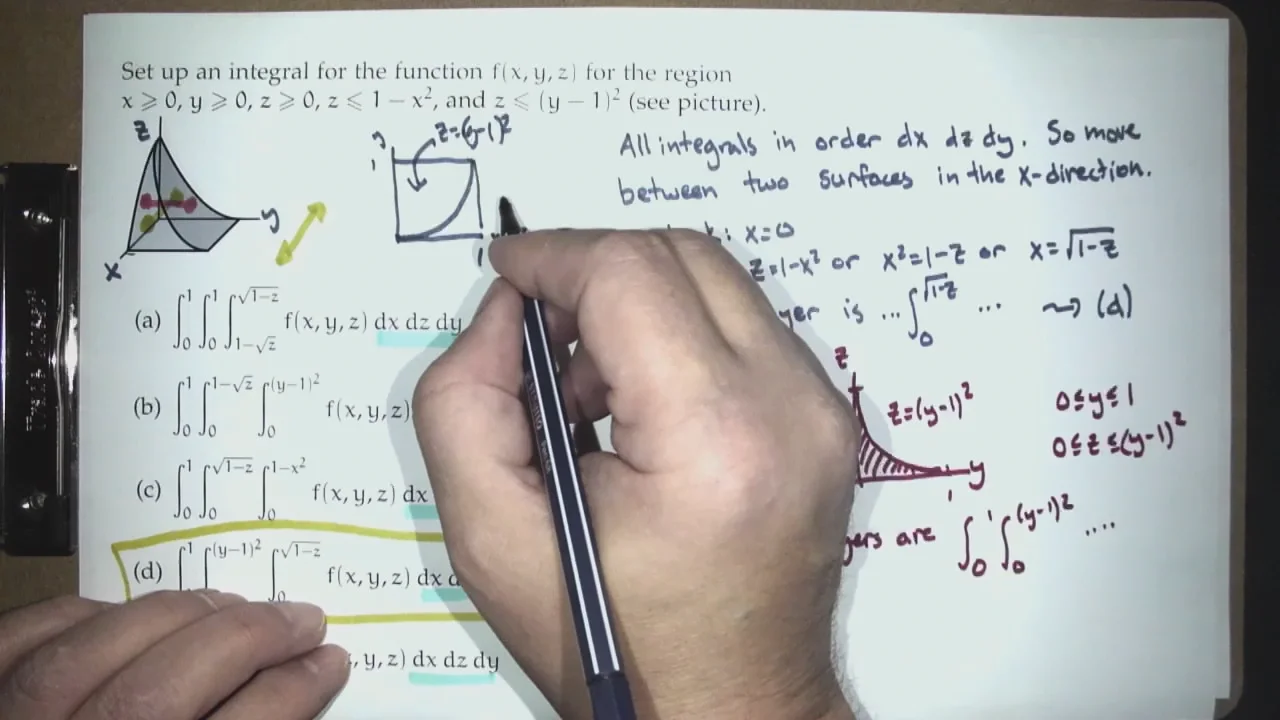 Set up an integral for the function f(x, y, z) for the region
x ⩾ 0, y ⩾ 0, z ⩾ 0, z ⩽ 1 − x², and z ⩽ (y − 1)² (see picture).
z
y
x
y
1
z=(y-1)²
1
All integrals in order dx dz dy. So move
between two surfaces in the x-direction.
: x=0
z=1-x² or x²=1-z or x=√(1-z)
is ...∫₀^√(1-z) ... ⇝ (d)
(a) ∫₀¹ ∫₀¹ ∫_{1−√z}^{√(1−z)} f(x, y, z) dx dz dy
(b) ∫₀¹ ∫₀^{1−√z} ∫₀^{(y−1)²} f(x, y, z)
(c) ∫₀¹ ∫₀^{√(1−z)} ∫₀^{1−x²} f(x, y, z) dx
(d) ∫¹ ∫^{(y−1)²} ∫₀^{√(1−z)} f(x, y, z) dx
, y, z) dx dz dy
z
z=(y-1)²
y
1
0≤y≤1
0≤z≤(y-1)²
are ∫₀¹ ∫₀^{(y-1)²} ....